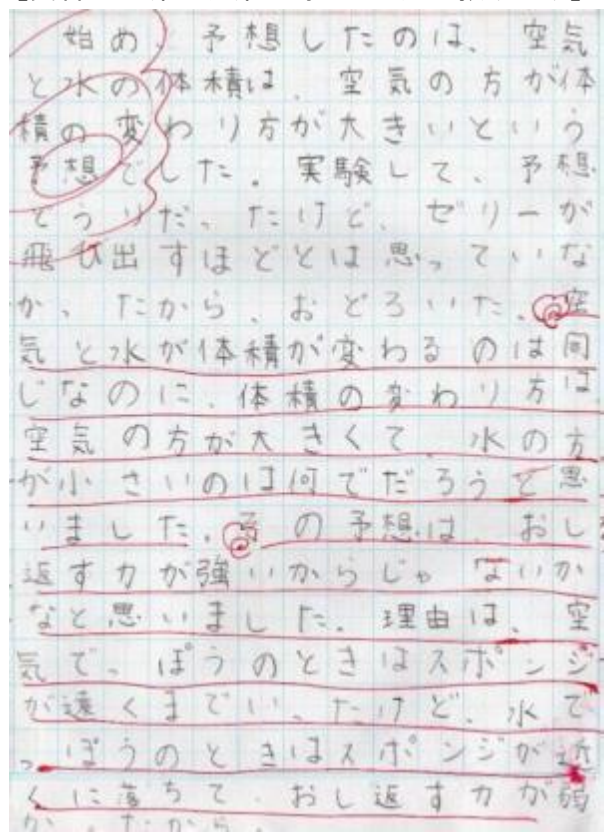 始め、予想したのは、空気
と水の体積は、空気の方が体
積の変わり方が大きいという
予想でした。実験して、予想
どうりだったけど、ゼリーが
飛び出すほどとは思っていな
かったから、おどろいた。空
気と水が体積が変わるのは同
じなのに、体積の変わり方は
空気の方が大きくて、水の方
が小さいのは何でだろうと思
いました。の予想は、おし
返す力が強いからじゃないか
なと思いました。理由は、空
気でっぽうのときはスポンジ
が遠くまでいったけど、水で
っぽうのときはスポンジが近
くに落ちて、おし返す力が弱
かったから。